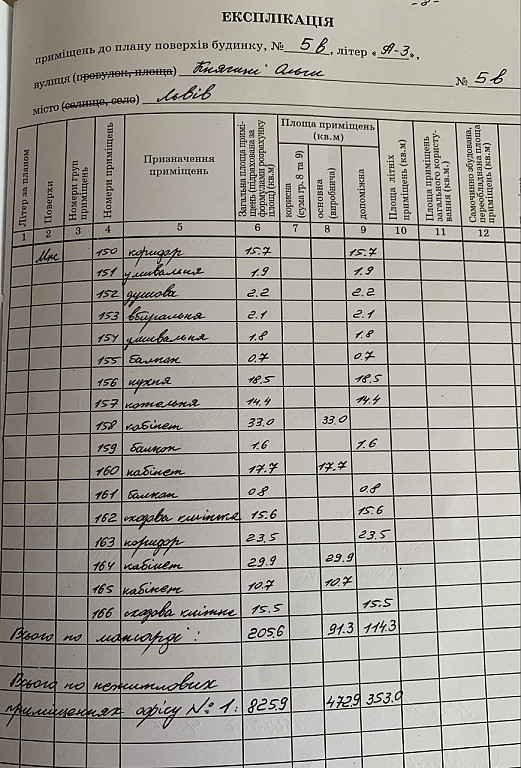 ЕКСПЛІКАЦІЯ
приміщень до плану поверхів будинку, № 5в, літер « А-3 »,
вулиця (провулок, площа) Княгині Ольги № 5в
місто (селище, село) Львів
Літер за планом
Поверхи
Номери груп приміщень
Номери приміщень
Призначення приміщень
Загальна площа приміщень (підрахована за формулами розрахунку площ) (кв.м)
Площа приміщень (кв.м)
корисна (сума гр. 8 та 9)
основна (виробнича)
допоміжна
Площа літніх приміщень (кв.м)
Площа приміщень загального користування (кв.м.)
Самочинно збудована, переобладнана площа приміщень (кв.м)
1 2 3 4 5 6 7 8 9 10 11 12
Мн 150 коридор 15.7 15.7
151 умивальня 1.9 1.9
152 душова 2.2 2.2
153 вбиральня 2.1 2.1
154 умивальня 1.8 1.8
155 балкон 0.7 0.7
156 кухня 18.5 18.5
157 котельня 14.4 14.4
158 кабінет 33.0 33.0
159 балкон 1.6 1.6
160 кабінет 17.7 17.7
161 балкон 0.8 0.8
162 сходова клітка 15.6 15.6
163 коридор 23.5 23.5
164 кабінет 29.9 29.9
165 кабінет 10.7 10.7
166 сходова клітка 15.5 15.5
Всього по мансарді: 205.6 91.3 114.3
Всього по нежитлових
приміщеннях офісу № 1: 825.9 472.9 353.0